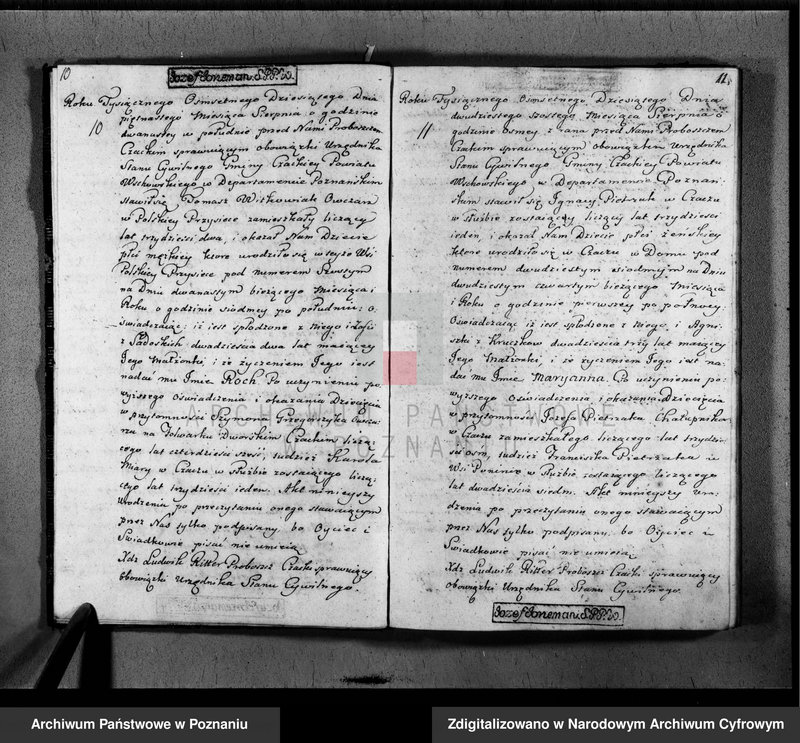 10
Jozef Joneman. S.P.P.W.
Roku Tysiącznego Osmsetnego Dziesiątego Dnia
piętnastego Miesiąca Sierpnia o godzinie
10
dwunastey w południe przed Nami Proboszczem
Czackim sprawuiącym obowiązki Urzędnika
Stanu Cywilnego Gminy Czackiey Powiatu
Wschowskiego w Departamencie Poznańskim
stawił się Tomasz Witkowiak Owczarz
w Polskiey Przysiece zamieszkały liczący
lat trzydzieści dwa, i okazał Nam Dziecie
płci męzkiey które urodziło się w teyże Wsi
Polskiey Przysiece pod numerem Szostym
na Dniu dwunastym bieżącego Miesiąca i
Roku o godzinie siodmey po południu; o:
świadczaiąc; iż iest spłodzone z niego i Zofii
z Sadoskich dwadzieścia dwa lat maiącey
Jego Małżonki, i że życzeniem Jego iest
nadać mu Imie Roch Po uczynieniu po
wyższego Oświadczenia i okazania Dziecięcia
w przytomności Szymona Grzegorzyka Owcza:
rza na Folwarku Dworskim Czackim liczą:
cego lat czterdzieści sześć, tudzież Karola
Miary w Czaczu w służbie zostaiącego liczą:
cego lat trzydzieści ieden. Akt ninieyszy
urodzenia po przeczytaniu onego stawaiącym
przez Nas tylko podpisany, bo Oyciec i
Świadkowie pisać nie umieią
Xdz Ludwik Ritter Proboszcz Czacki sprawuiący
obowiązki Urzędnika Stanu Cywilnego.
11
Roku Tysiącznego Osmsetnego Dziesiątego Dnia
dwudziestego szostego Miesiąca Sierpnia o
11
godzinie osmey z rana przed Nami Proboszczem
Czackim sprawuiącym obowiązki Urzędnika
Stanu Cywilnego Gminy Czackiey Powiatu
Wschowskiego w Departamencie Poznań:
skim stawił się Ignacy Pietrzak w Czaczu
w służbie zostaiący liczący lat trzydzieści
ieden, i okazał Nam Dziecie płci żeńskiey
które urodziło się w Czaczu w Domu pod
numerem dwudziestym siodmym na Dniu
dwudziestym czwartym bieżącego Miesiąca
i Roku o godzinie pierwszey po połnocy;
Oświadczaiąc iż iest spłodzone z niego, i Agni:
szki z Kruczkow dwadzieścia trzy lat maiącey
Jego Małżonki, i że życzeniem Jego iest na:
dać mu Imie Maryanna. Po uczynieniu po:
wyższego Oświadczenia i okazania Dziecięcia
w przytomności Jozefa Pietrzaka Chałupnika
w Czaczu zamieszkałego liczącego lat trzydzie:
ści osm, tudzież Franciszka Pietrzaka ze
Wsi Ponina w służbie zostaiącego liczącego
lat dwadzieścia siedm. Akt ninieyszy uro:
dzenia po przeczytaniu onego stawaiącym
przez Nas tylko podpisany, bo Oyciec i
Świadkowie pisać nie umieią
Xdz Ludwik Ritter Proboszcz Czacki sprawuiący
obowiązki Urzędnika Stanu Cywilnego.
Jozef Joneman. S.P.P.W.
ARCHIWUM PAŃSTWOWE
POZNAŃ
Archiwum Państwowe w Poznaniu
Zdigitalizowano w Narodowym Archiwum Cyfrowym